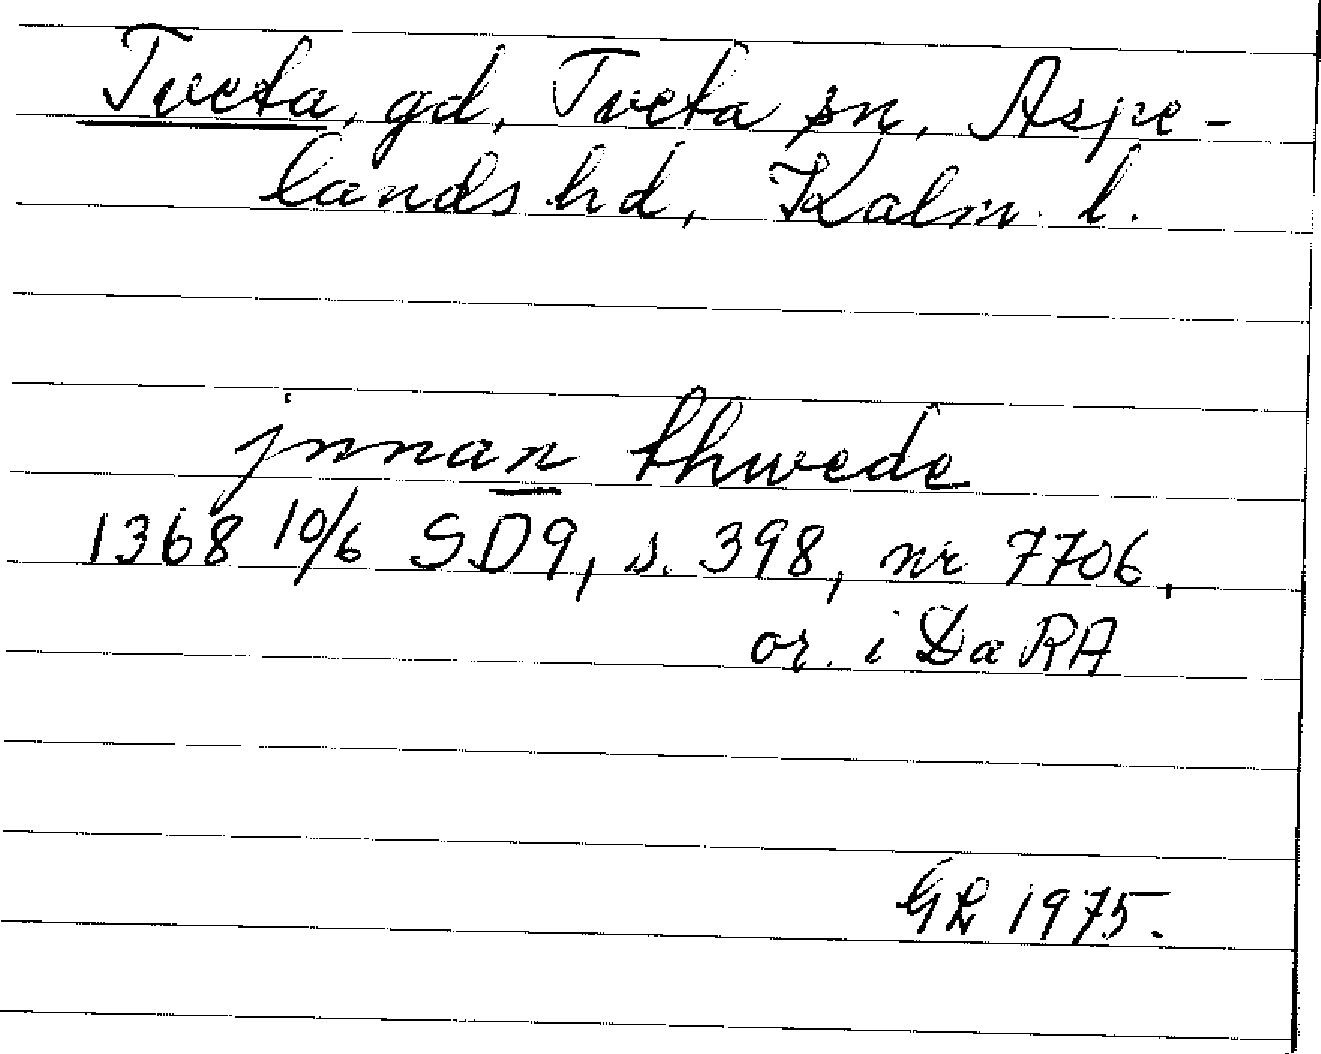 Tveta, gd, Tveta sn, Aspe-
lands hd, Kalm. l.
jnnan thwede
1368 10/6 SD9, s. 398, nr 7706,
or. i DaRA
GL 1975.